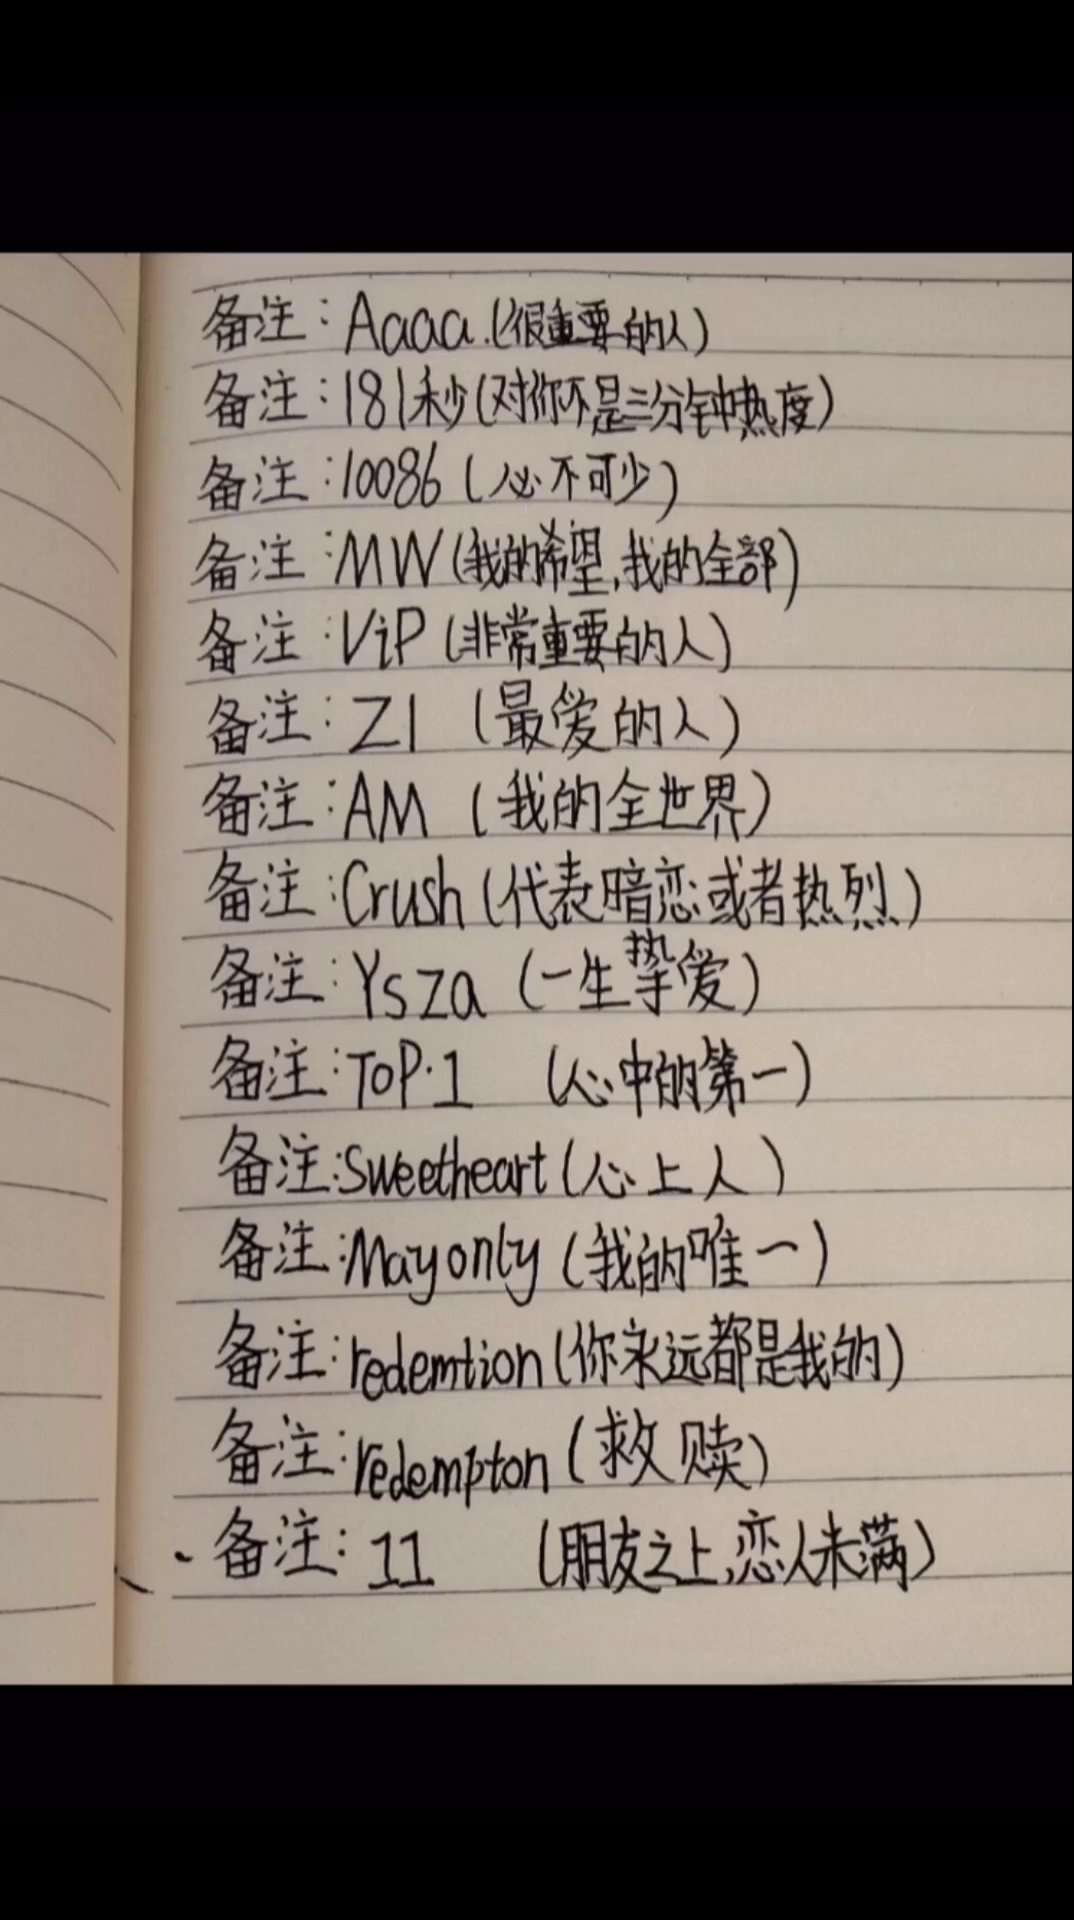 备注：Aaaa.(很重要的人)
备注：181秒(对你不是三分钟热度)
备注：10086(必不可少)
备注：MW(我的希望,我的全部)
备注：ViP(非常重要的人)
备注：Z1(最爱的人)
备注：AM(我的全世界)
备注：Crush(代表暗恋或者热烈)
备注：Ysza(一生挚爱)
备注：ToP·1(心中的第一)
备注:Sweetheart(心上人)
备注:Mayonly(我的唯一)
备注:redemtion(你永远都是我的)
备注:redempton(救赎)
备注：11(朋友之上,恋人未满)